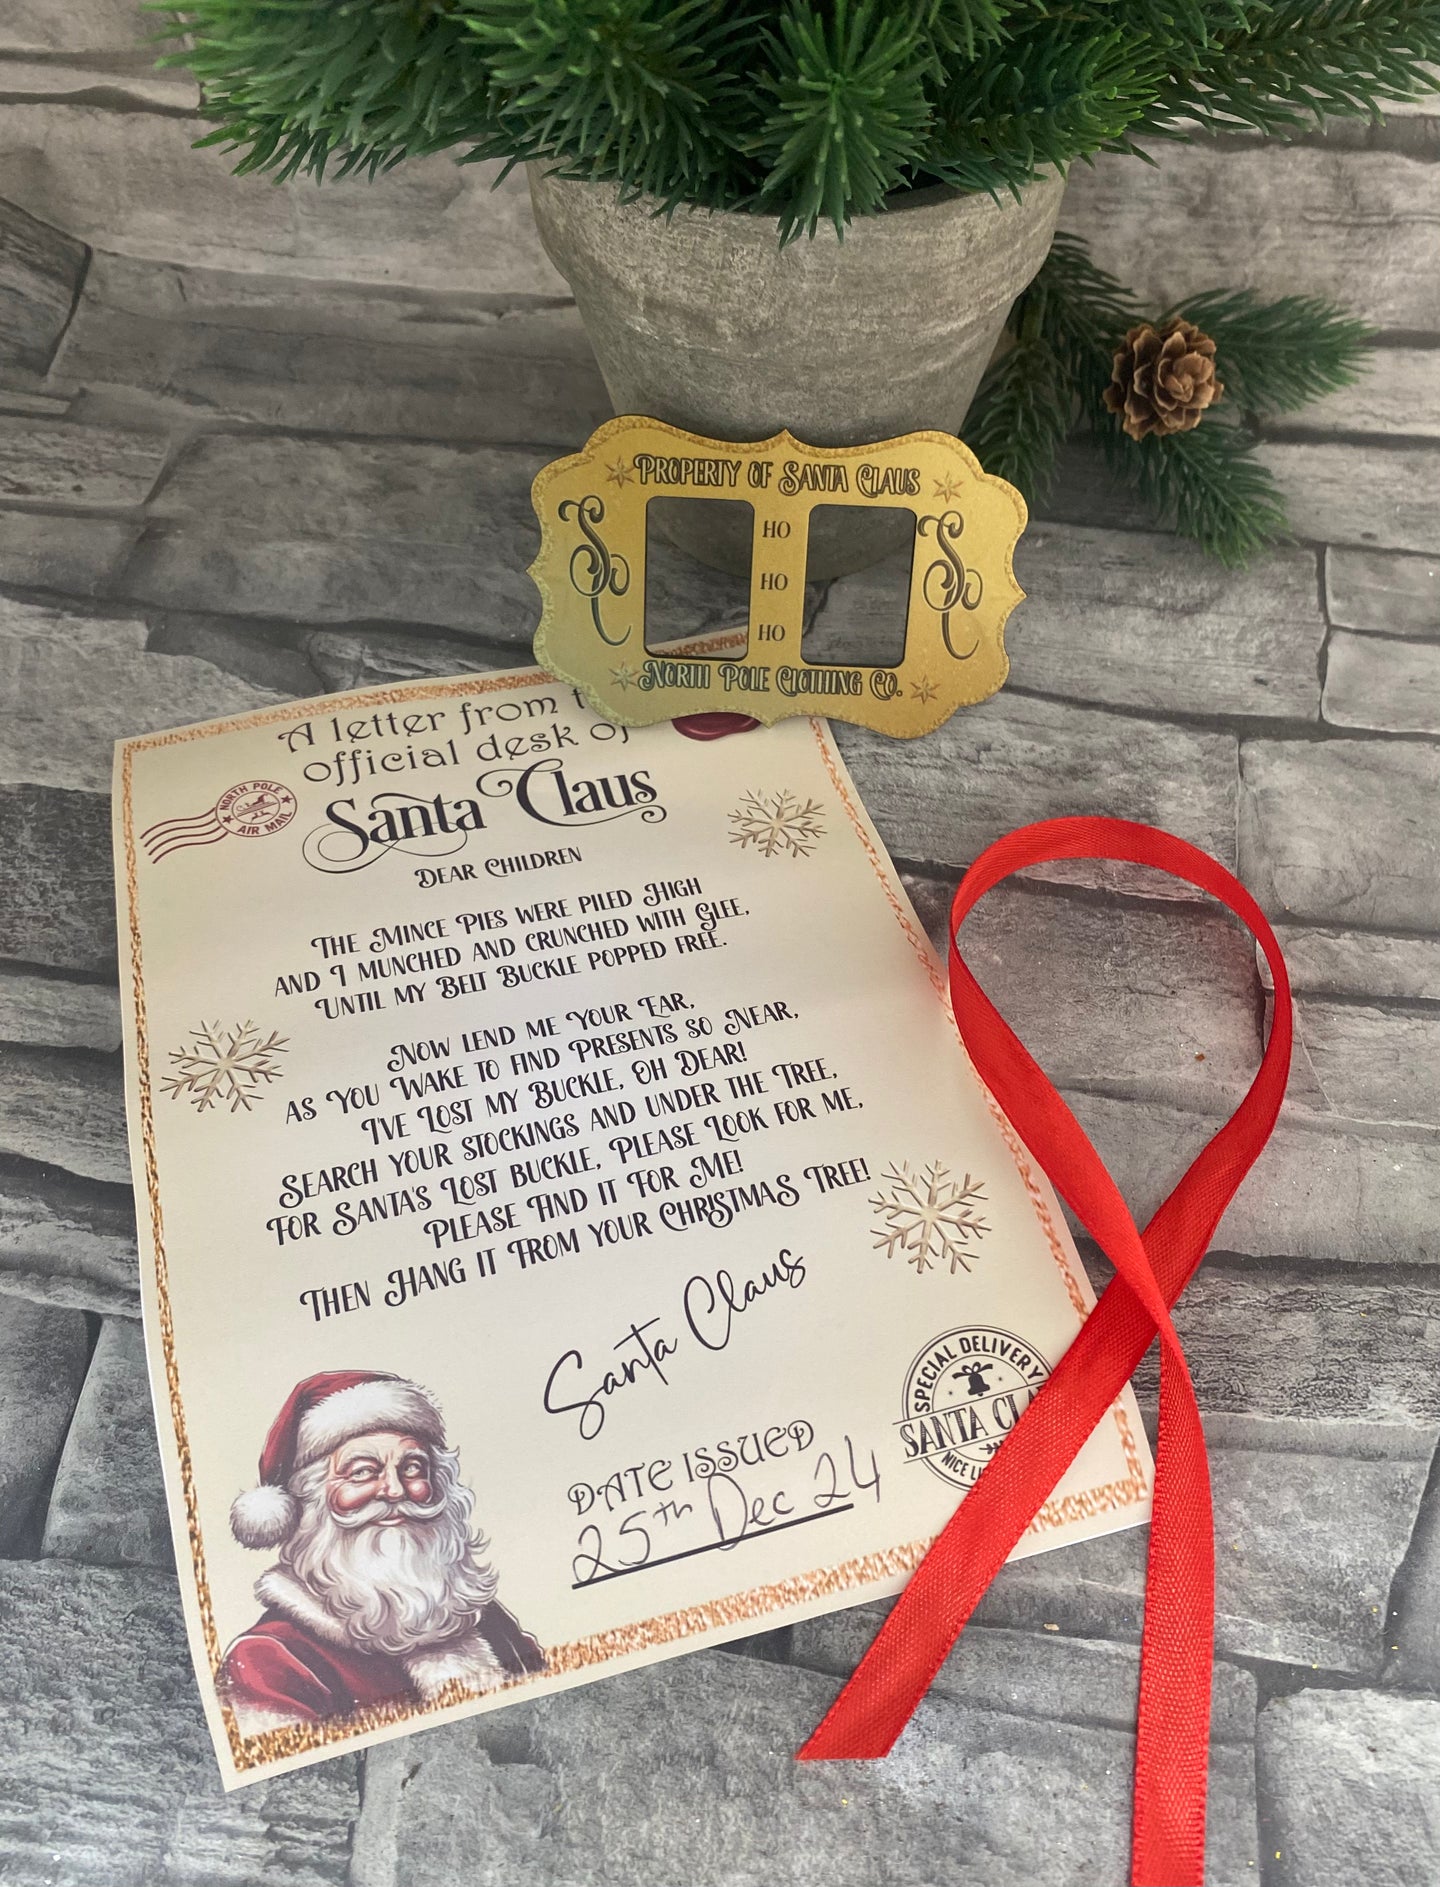 PROPERTY OF SANTA CLAUS
SC
HO
HO
HO
SC
NORTH POLE CLOTHING CO.
A letter from
official desk of
Santa Claus
NORTH POLE
AIR MAIL
DEAR CHILDREN
THE MINCE PIES WERE PILED HIGH
AND I MUNCHED AND CRUNCHED WITH GLEE,
UNTIL MY BELT BUCKLE POPPED FREE.
NOW LEND ME YOUR EAR,
AS YOU WAKE TO FIND PRESENTS SO NEAR,
I'VE LOST MY BUCKLE, OH DEAR!
SEARCH YOUR STOCKINGS AND UNDER THE TREE,
FOR SANTA'S LOST BUCKLE, PLEASE LOOK FOR ME,
PLEASE FIND IT FOR ME!
THEN HANG IT FROM YOUR CHRISTMAS TREE!
Santa Claus
DATE ISSUED
25th Dec 24
SPECIAL DELIVERY
SANTA
NICE